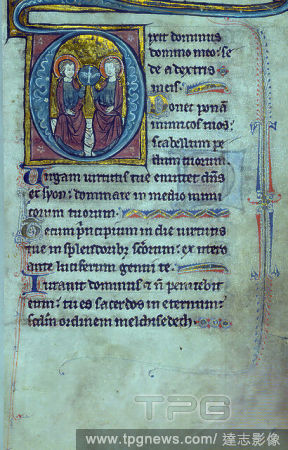 ixit dominus
domino meo: se
de a dextris
meis.
Donec ponā
inimicos tuos:
scabellum pe
dum tuorum.
Uirgam uirtutis tue emittet dñs
ex syon: dominare in medio inimi
corum tuorum.
Tecum principium in die uirtutis
tue in splendoribus scōrum: ex utero
ante luciferum genui te.
Iurauit dominus & ñ penitebit
eum: tu es sacerdos in eternum
scdm ordinem melchisedech.
TPG
www.tpgnews.com/ 達志影像